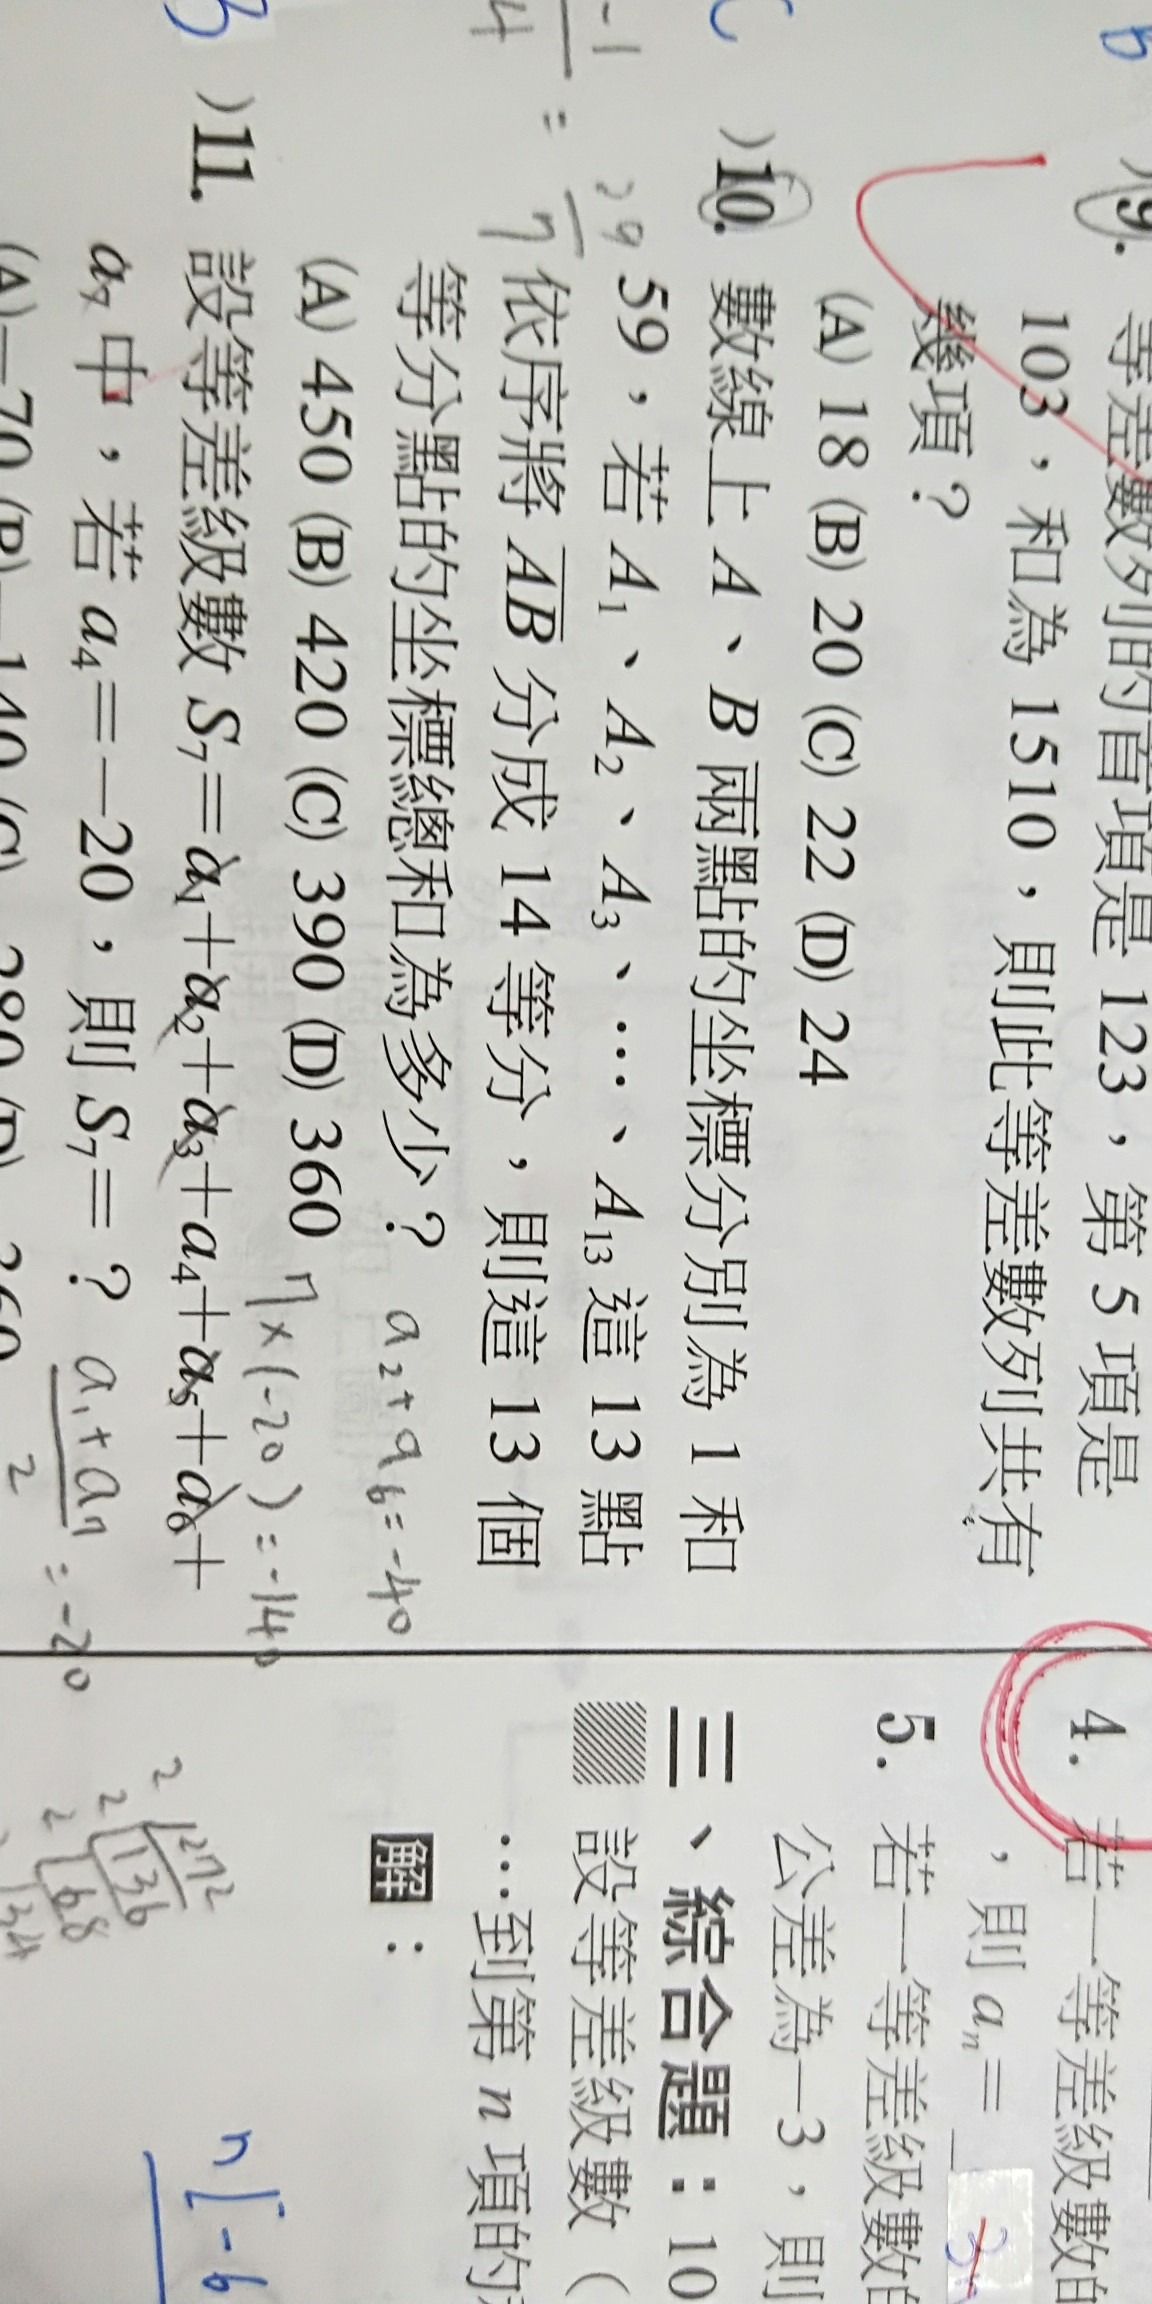 )9. 等差數列的首項是 123，第 5 項是
103，和為 1510，則此等差數列共有
幾項？
(A) 18 (B) 20 (C) 22 (D) 24
C )10. 數線上 A、B 兩點的坐標分別為 1 和
59，若 A₁、A₂、A₃、…、A₁₃ 這 13 點
依序將 AB 分成 14 等分，則這 13 個
等分點的坐標總和為多少？
a₂+a₆=-40
(A) 450 (B) 420 (C) 390 (D) 360
7×(-20)=-140
B )11. 設等差級數 S₇=a₁+a₂+a₃+a₄+a₅+a₆+
a₇ 中，若 a₄=-20，則 S₇=？
a₁+a₇
2
=-20
(A)-70 (B)-140 (C)
4. 若一等差級數的
，則 aₙ=
5. 若一等差級數的
公差為-3，則
三、綜合題：10
設等差級數（
…到第 n 項的
解：
2 272
2 136
2 68
34
n -6